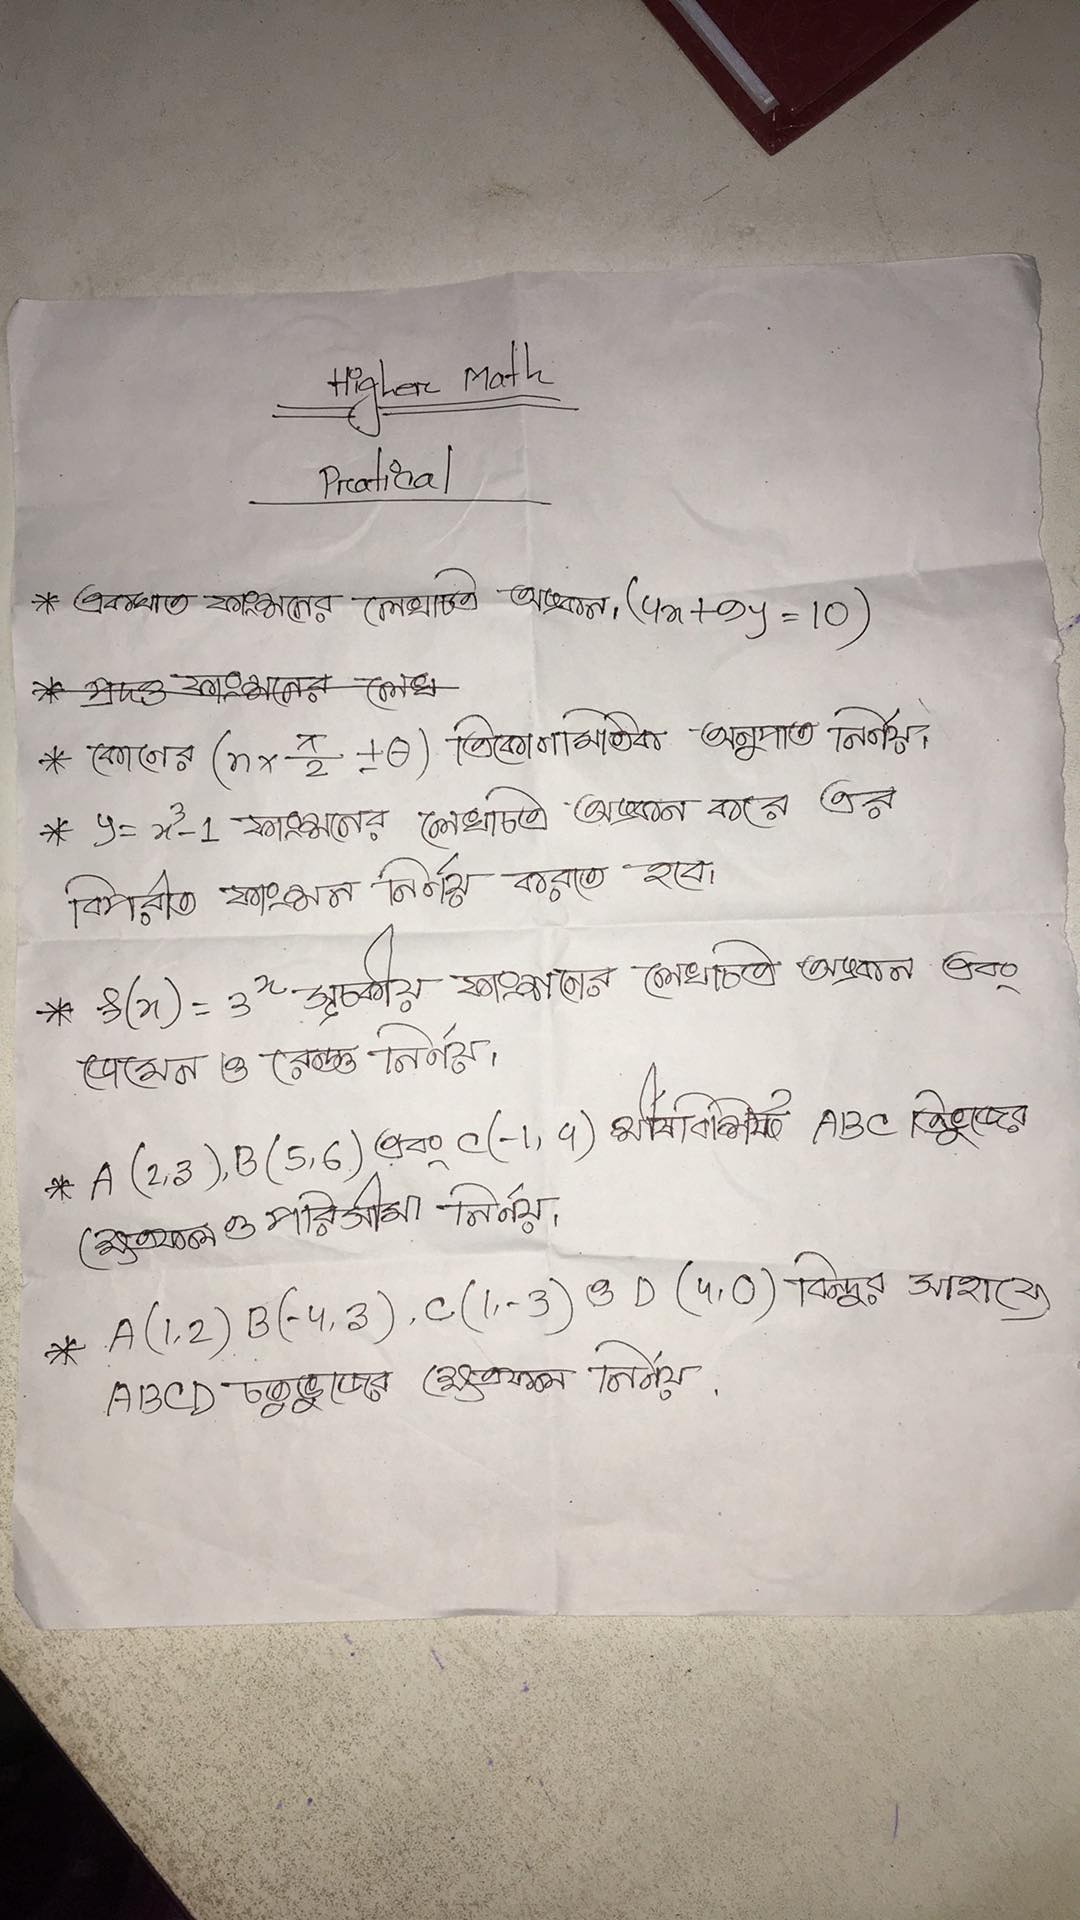 Higher Math
Pratical
* একঘাত ফাংশনের লেখচিত্র অঙ্কন। (4x+9y=10)
* প্রদত্ত ফাংশনের লেখ
* কোণের (n× π/2 ±θ) ত্রিকোণমিতিক অনুপাত নির্ণয়।
* y = x³-1 ফাংশনের লেখচিত্র অঙ্কন করে এর
বিপরীত ফাংশন নির্ণয় করতে হবে।
* f(x) = 3ˣ সূচকীয় ফাংশনের লেখচিত্র অঙ্কন এবং
ডোমেন ও রেঞ্জ নির্ণয়।
* A (2,3), B(5,6) এবং C(-1,4) শীর্ষবিশিষ্ট ABC ত্রিভুজের
ক্ষেত্রফল ও পরিসীমা নির্ণয়।
* A(1,2) B(-4,3), C(1,-3) ও D (4,0) বিন্দুর সাহায্যে
ABCD চতুর্ভুজের ক্ষেত্রফল নির্ণয়.